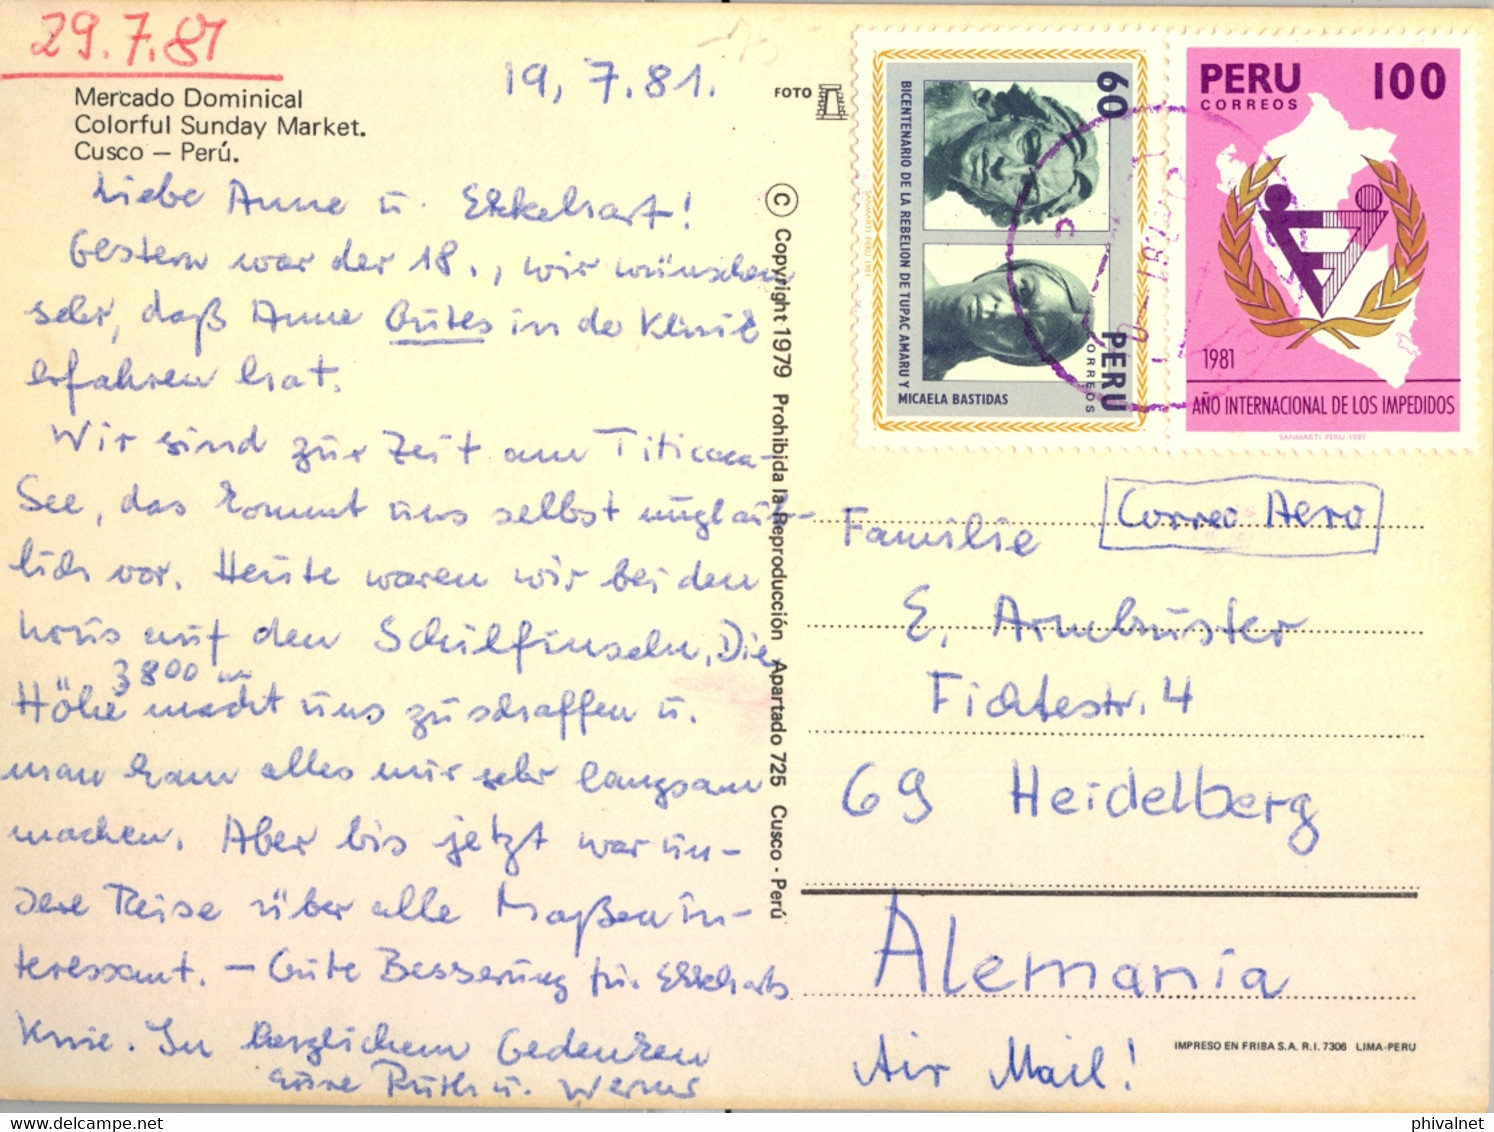 29.7.81
19, 7.81.
Mercado Dominical
Colorful Sunday Market.
Cusco – Perú.
FOTO
Liebe Anne u. Ekkehart!
Gestern war der 18., wir wünschen
sehr, daß Anne Gutes in der Klinik
erfahren hat.
Wir sind zur Zeit am Titicaca-
See, das kommt uns selbst unglaub-
lich vor. Heute waren wir bei den
Urus auf den Schilfinseln. Die
3800 m
Höhe macht uns zu schaffen u.
man kann alles nur sehr langsam
machen. Aber bis jetzt war un-
sere Reise über alle Maßen in-
teressant. – Gute Besserung für Ekkeharts
Knie. In herzlichem Gedenken
Eure Ruth u. Werner
© Copyright 1979 Prohibida la Reproducción Apartado 725 Cusco - Perú
BICENTENARIO DE LA REBELION DE TUPAC AMARU Y
MICAELA BASTIDAS
60
PERU
CORREOS
SANMARTI PERU 1981
PERU 100
CORREOS
1981
AÑO INTERNACIONAL DE LOS IMPEDIDOS
SANMARTI PERU 1981
Correo Aero
Familie
E. Armbruster
Fichtestr. 4
69 Heidelberg
Alemania
Air Mail!
IMPRESO EN FRIBA S.A. R.I. 7306 LIMA-PERU
phivalnet